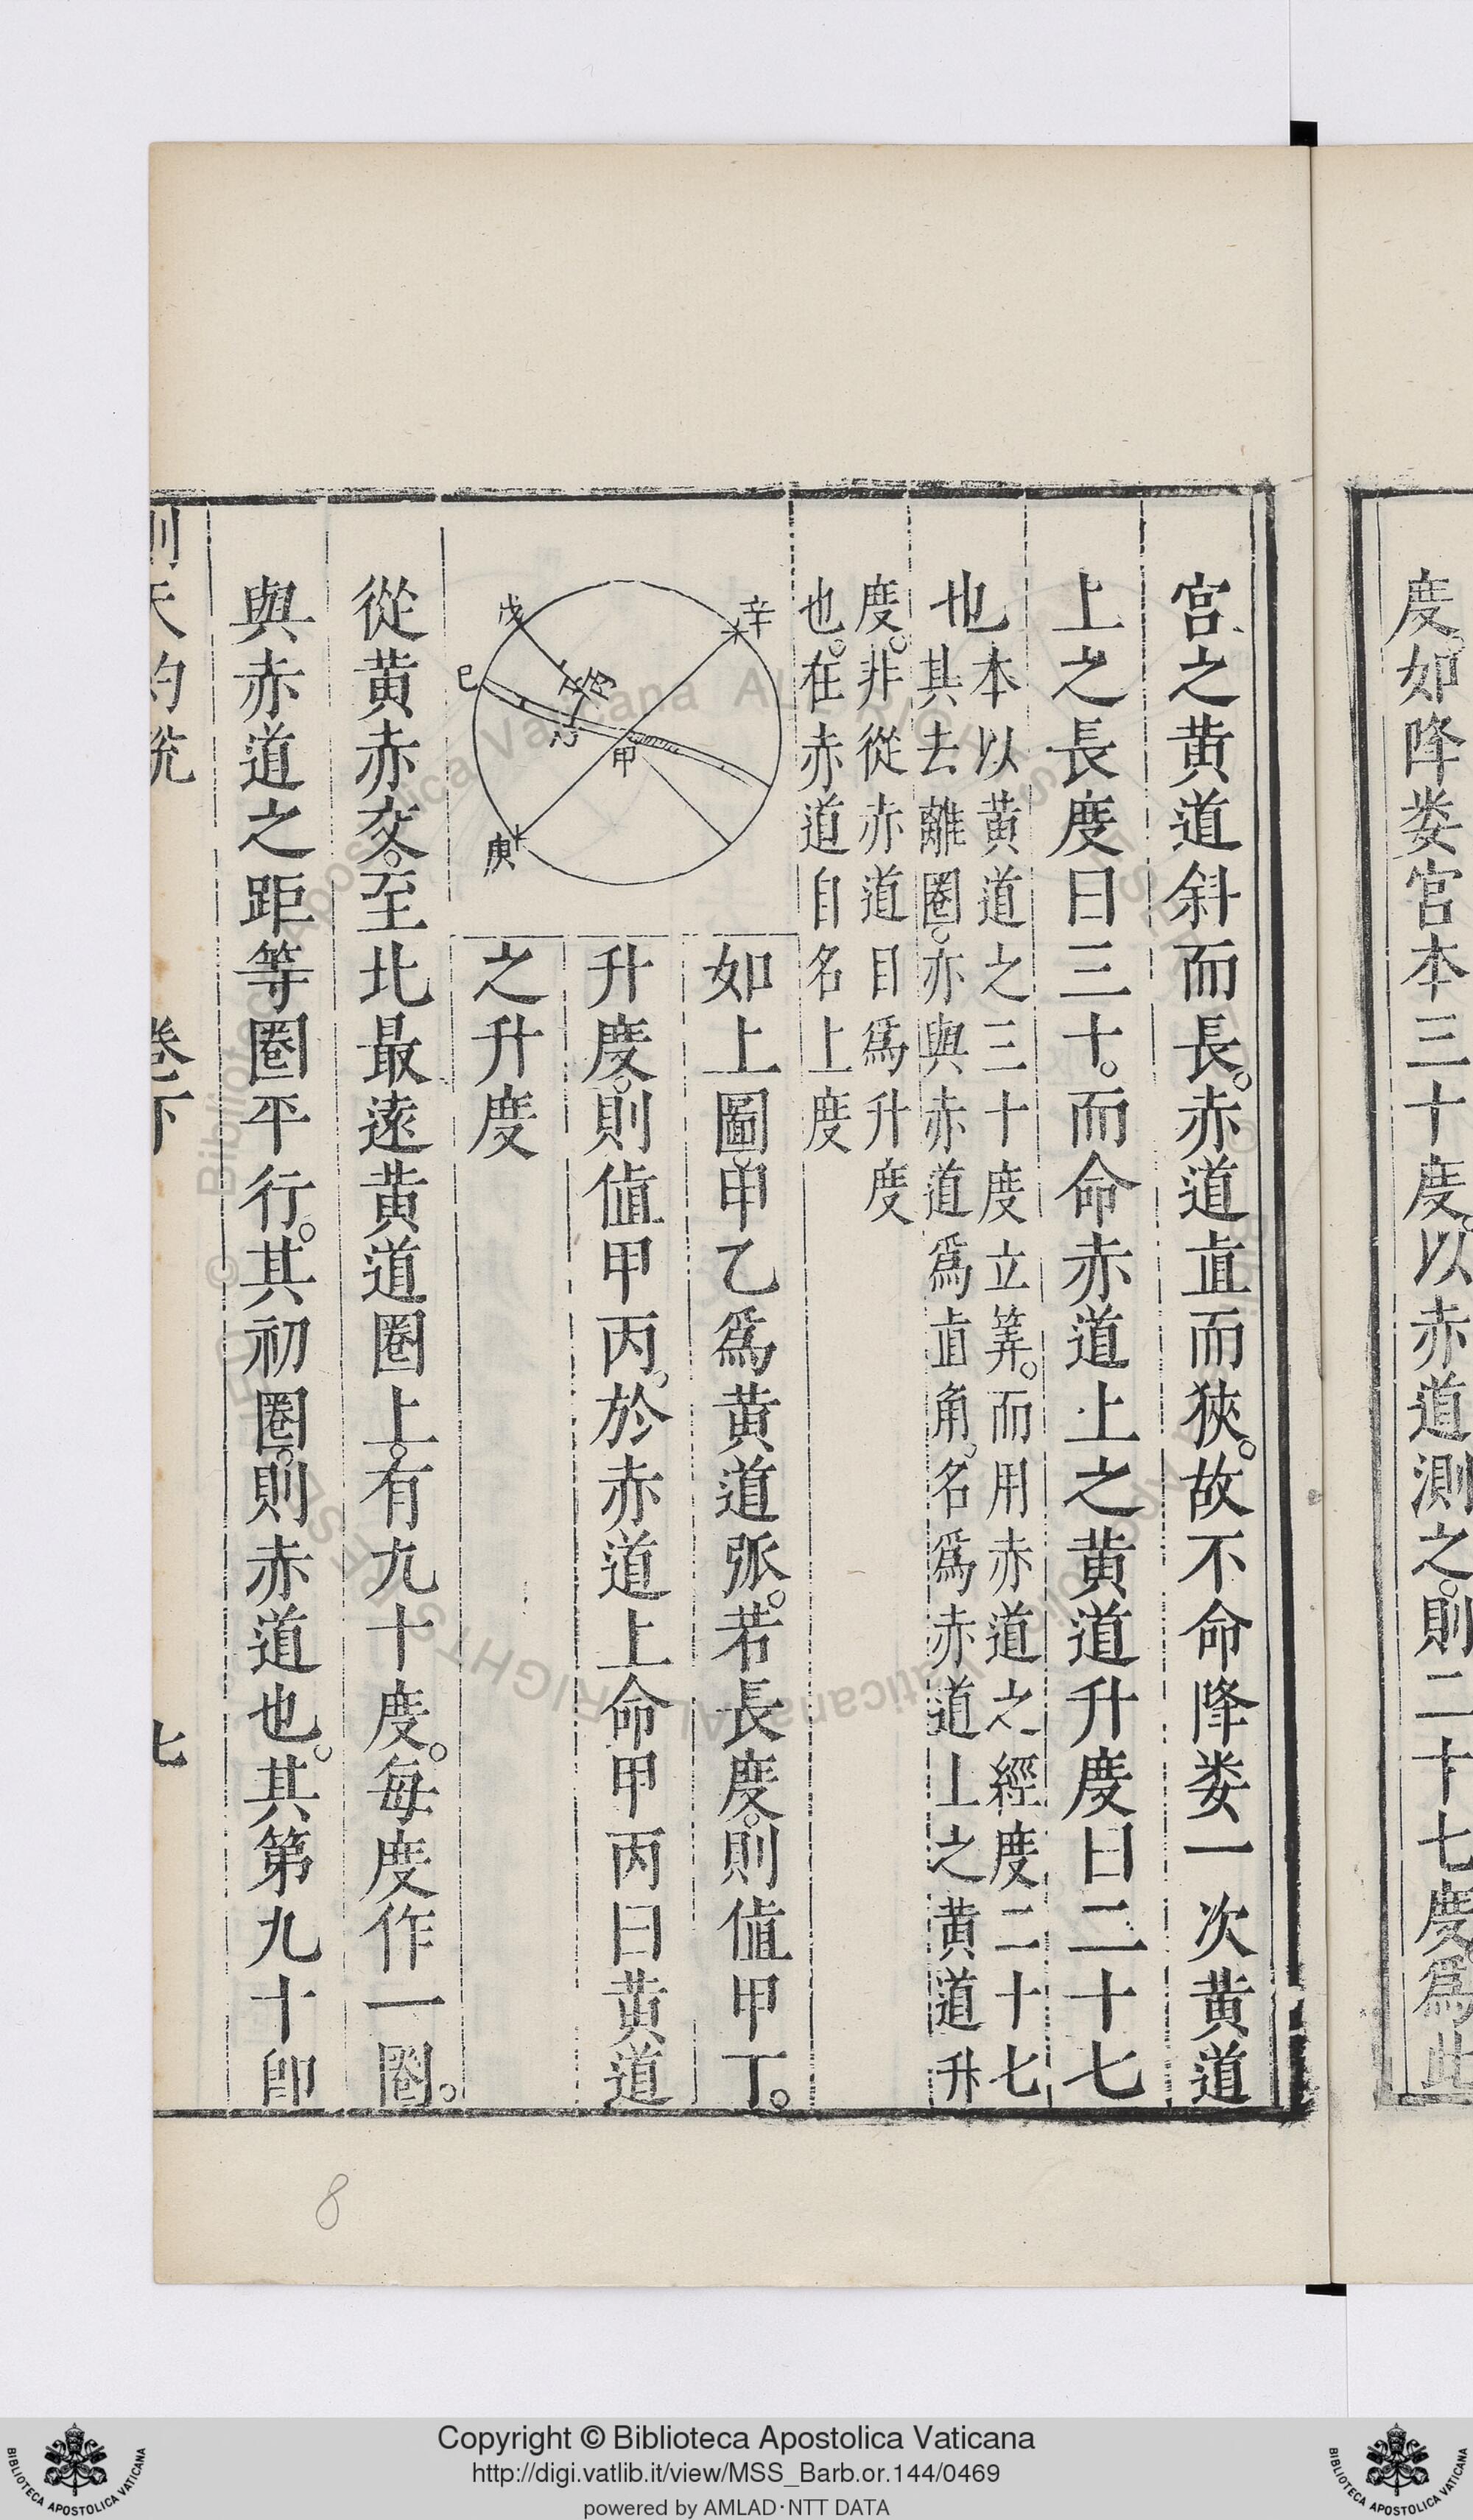 度。如降娄宮本三十度。以赤道測之。則二十七度。爲此
宮之黄道斜而長。赤道直而狹。故不命降娄一次黄道
上之長度曰三十。而命赤道上之黄道升度曰二十七
也
本以黄道之三十度立筭。而用赤道之經度二十七
其去離圈。亦與赤道爲直角。名爲赤道上之黄道升
度。非從赤道目爲升度
也。在赤道自名上度
如上圖。甲乙爲黄道弧。若長度。則值甲丁。
升度。則值甲丙。於赤道上命甲丙曰黄道
之升度
辛
戊
丙
丁
乙
己
甲
庚
從黄赤交。至北最遠黄道圈上。有九十度。每度作一圈。
與赤道之距等圈平行。其初圈。則赤道也。其第九十卽
天
卷下
七
8
Copyright © Biblioteca Apostolica Vaticana
http://digi.vatlib.it/view/MSS_Barb.or.144/0469
powered by AMLAD·NTT DATA
BIBLIOTECA APOSTOLICA VATICANA
BIBLIOTECA APOSTOLICA VATICANA